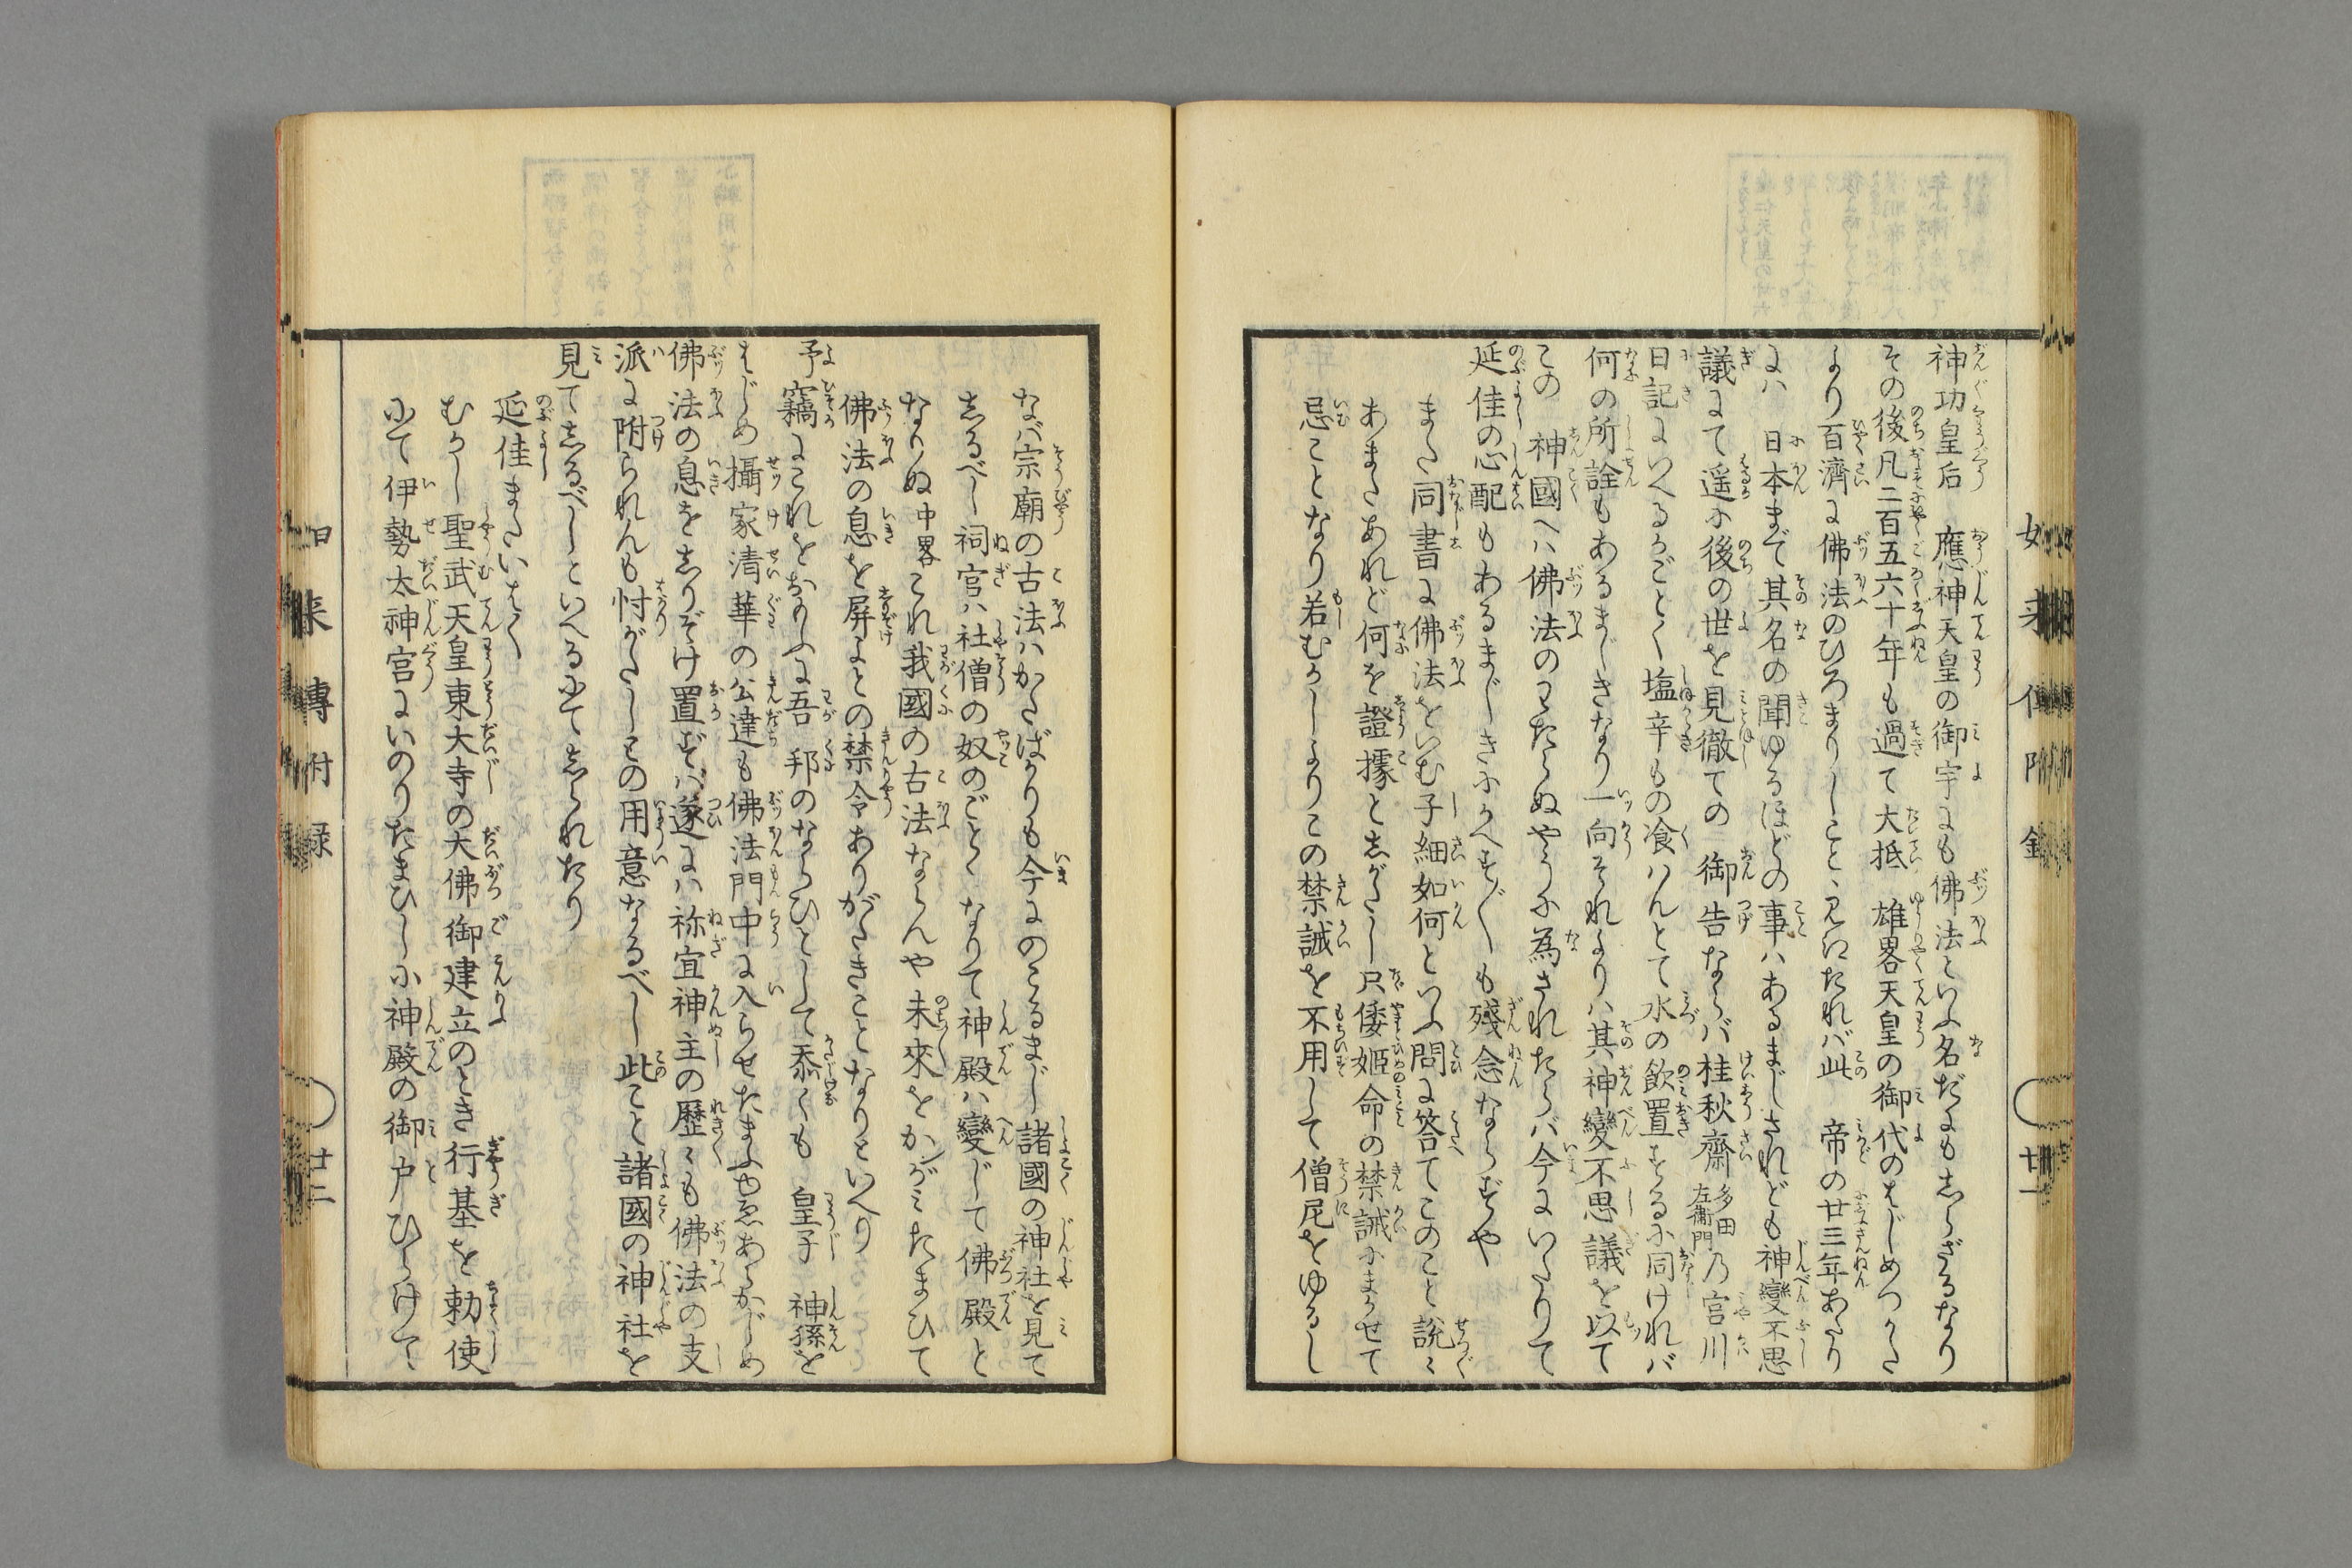 神功皇后　應神天皇の御宇にも佛法といふ名だにもしらざるなり
その後凡二百五六十年も過て大抵　雄畧天皇の御代のはじめつかた
より百濟に佛法のひろまりしこと、見えたれバ此　帝の廿三年あたり
にハ　日本まで其名の聞ゆるほどの事ハあるまじされども神變不思
議にて遥に後の世を見徹ての　御告ならバ桂秋齋多田左衞門乃宮川
日記にいへるがごとく塩辛もの飡ハんとて水の飲置するに同けれバ
何の所詮もあるまじきなり一向それよりハ其神變不思議を以て
この　神國へハ佛法のわたらぬやうに為されたらバ今にいたりて
延佳の心配もあるまじきにかへす〲も殘念ならずや
また同書に佛法をいむ子細如何といふ問に答てこのこと説〻
あまたあれど何を證據としがたし只倭姫命の禁誡にまかせて
忌ことなり若むかしよりこの禁誡を不用して僧尼をゆるし
なバ宗廟の古法ハかたばかりも今にのこるまじ諸國の神社を見て
しるべし祠官ハ社僧の奴のごとくなりて神殿ハ變じて佛殿と
なりぬ中畧これ我國の古法ならんや未來をかゞミたまひて
佛法の息を屏よとの禁令ありがたきことなりといへり
予竊にこれをおもふに吾邦のならひとして忝くも　皇子　神孫を
はじめ攝家清華の公達も佛法門中に入らせたまふやゑあらかじめ
佛法の息をしりぞけ置ずバ遂にハ祢宜神主の歷〻も佛法の支
派に附られんも忖がたしとの用意なるべし此こと諸國の神社を
見てしるべしといへるにてしられたり
延佳またいはく
むかし聖武天皇東大寺の大佛御建立のとき行基を勅使
にて伊勢太神宮にいのりたまひしに神殿の御戸ひらけて、
如来傳附録
廿一
如来傳附録
廿二